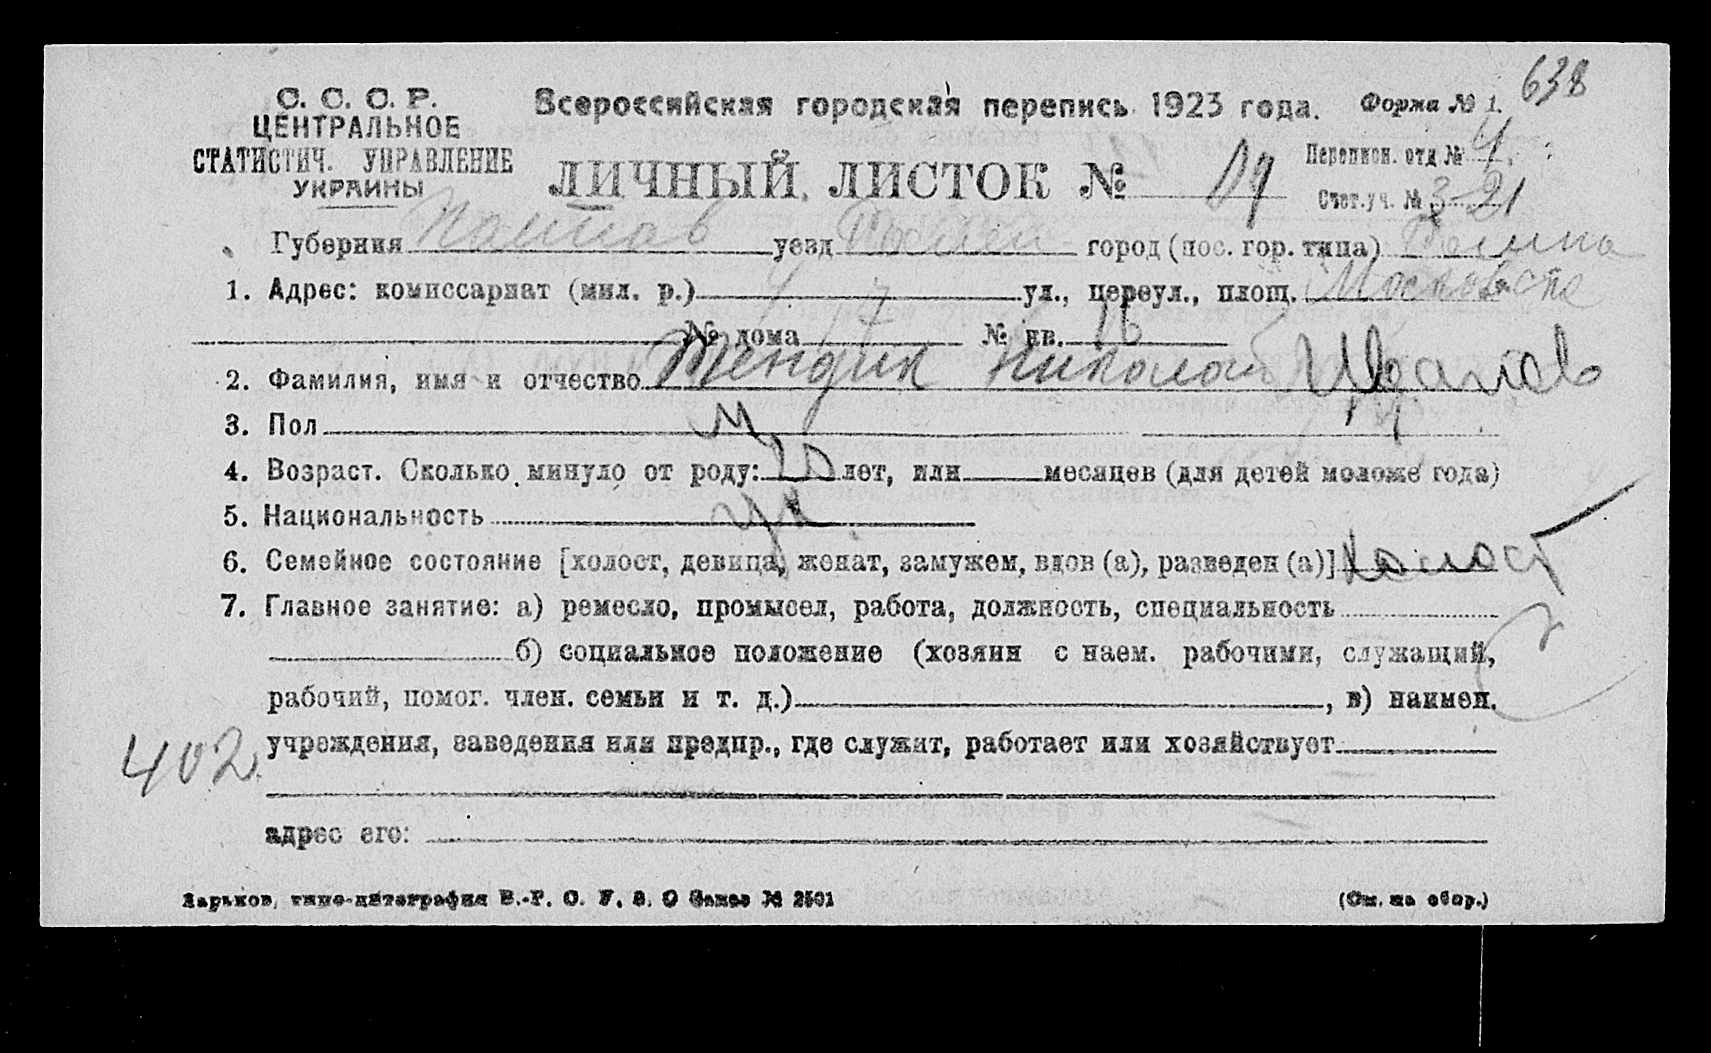 638
С. С. С. Р.
ЦЕНТРАЛЬНОЕ
СТАТИСТИЧ. УПРАВЛЕНИЕ
УКРАИНЫ
Всероссийская городская перепись 1923 года. Форма № 1.
ЛИЧНЫЙ ЛИСТОК №
Перепион. отд № 4
Стат. уч. № 3-21
Губерния Полтав уезд город (пос. гор. типа)
1. Адрес: комиссариат (мил. р.) 4 ул., переул., площ. Московска
№ дома 7 № кв. 16
2. Фамилия, имя и отчество Тендик Николай Иванов
3. Пол М
4. Возраст. Сколько минуло от роду: 20 лет, или месяцев (для детей моложе года)
5. Национальность ук
6. Семейное состояние [холост, девица, женат, замужем, вдов (а), разведен (а)] Холост
7. Главное занятие: а) ремесло, промысел, работа, должность, специальность
б) социальное положение (хозяин с наем. рабочими, служащий,
рабочий, помог. член. семьи и т. д.) , в) наимен.
402 учреждения, заведения или предпр., где служит, работает или хозяйствует
адрес его:
Харьков, типо-литография В.-Р. О. У. З. О Заказ № 2501 (См. на обор.)